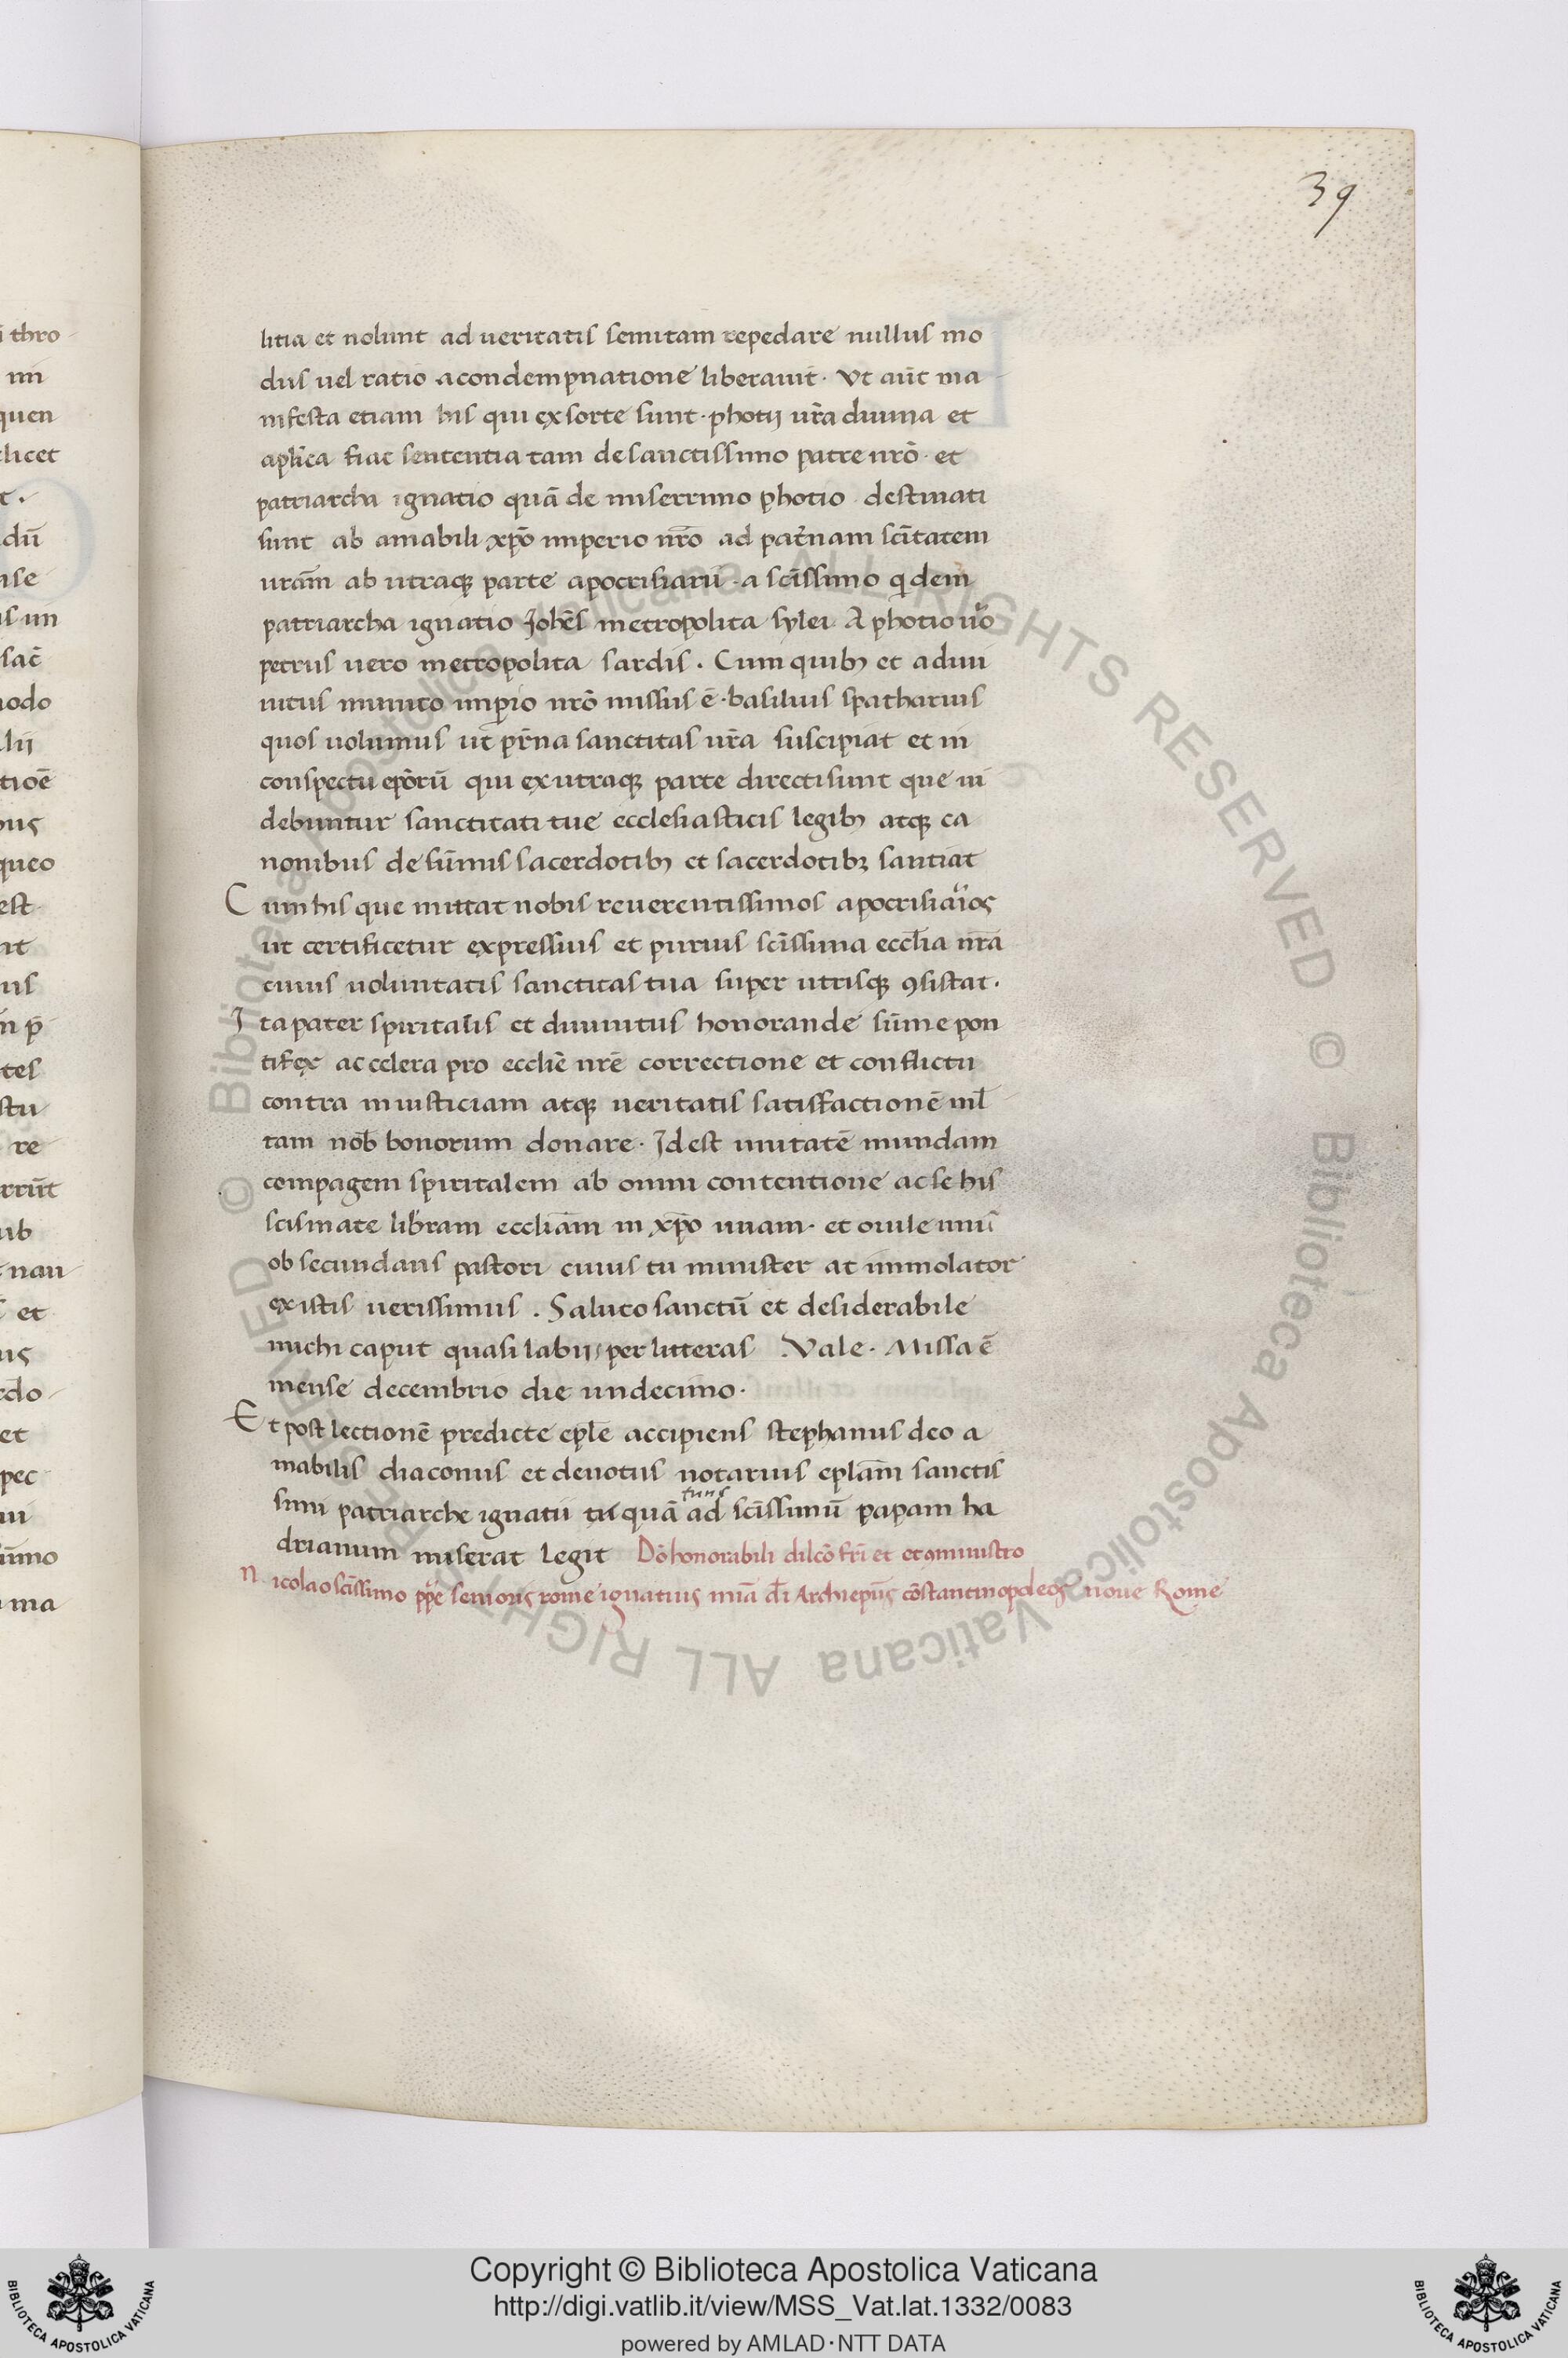 39
litia et nolunt ad ueritatis semitam repedare nullus mo
dus uel ratio acondempnatione liberauit. Vt aūt ma
nifesta etiam his qui exsorte sunt. photij ur̄a diuina et
aplīca fiat sententia tam desanctissimo patre nrō. et
patriarcha ignatio quā de miserrimo photio destinati
sunt ab amabili xp̄o imperio nr̄o ad pat̄nam sc̄itatem
uram̄ ab utraqꝫ parte apocrisiarii. a sc̄issimo qdem
patriarcha ignatio Joh̄es metropolita sylei. A photio uo
petrus uero metropolita sardis. Cum quibꝫ et adiui
uitus munito imp̄io nrō missus ē. basilius spatharius
quos uolumus ut pr̄na sanctitas ur̄a suscipiat et in
conspectu ep̄orū qui exutraqꝫ parte directisunt que ui
debuntur sanctitati tue ecclesiasticis legibꝫ atqꝫ ca
nonibus de sūmis sacerdotibꝫ et sacerdotibꝫ santiat
Cum his que mittat nobis reuerentissimos apocrisiarios
ut certificetur expressius et purius sc̄issima eccl̄ia nr̄a
cuius uoluntatis sanctitas tua super utrisqꝫ ꝯsistat.
Ita pater spiritalis et diuinitus honorande sūme pon
tifex accelera pro eccliē nrē correctione et conflictu
contra iniusticiam atqꝫ ueritatis satisfactionē ml̄
tam nob̄ bonorum donare. Idest unitatē mundam
compagem spiritalem ab omni contentione ac se his
scismate lib̄ram eccliam̄ in xp̄o unam. et ouile uni
obsecundans pastori cuius tu minister at immolator
existis uerissimus. Saluto sanctū et desiderabile
michi caput quasi labijs per litteras Vale. Missa ē
mense decembrio die undecimo.
Et post lectionē predicte epl̄e accipiens stephanus deo a
mabilis diaconus et deuotus notarius eplam̄ sanctis
simi patriarche ignatii tū quā ad sc̄issimū papam ha
drianum miserat legit Dō honorabili dilcō fr̄i et comministro
Nicolao sc̄issimo pp̄e senioris rome ignatius mīa dī Archiep̄us cōstantinopoleos noue Rome
Copyright © Biblioteca Apostolica Vaticana
http://digi.vatlib.it/view/MSS_Vat.lat.1332/0083
powered by AMLAD·NTT DATA